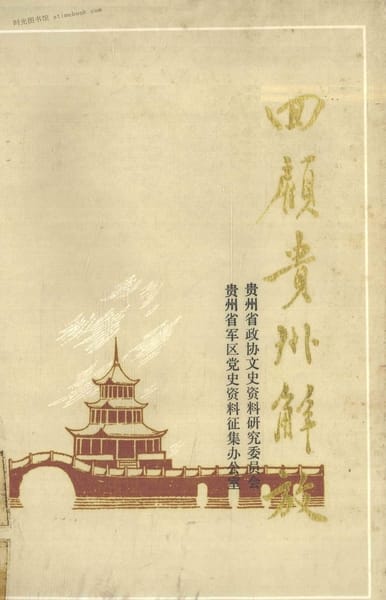 时光图书馆 stimebook.com
回顾贵州解放
贵州省政协文史资料研究委员会
贵州省军区党史资料征集办公室